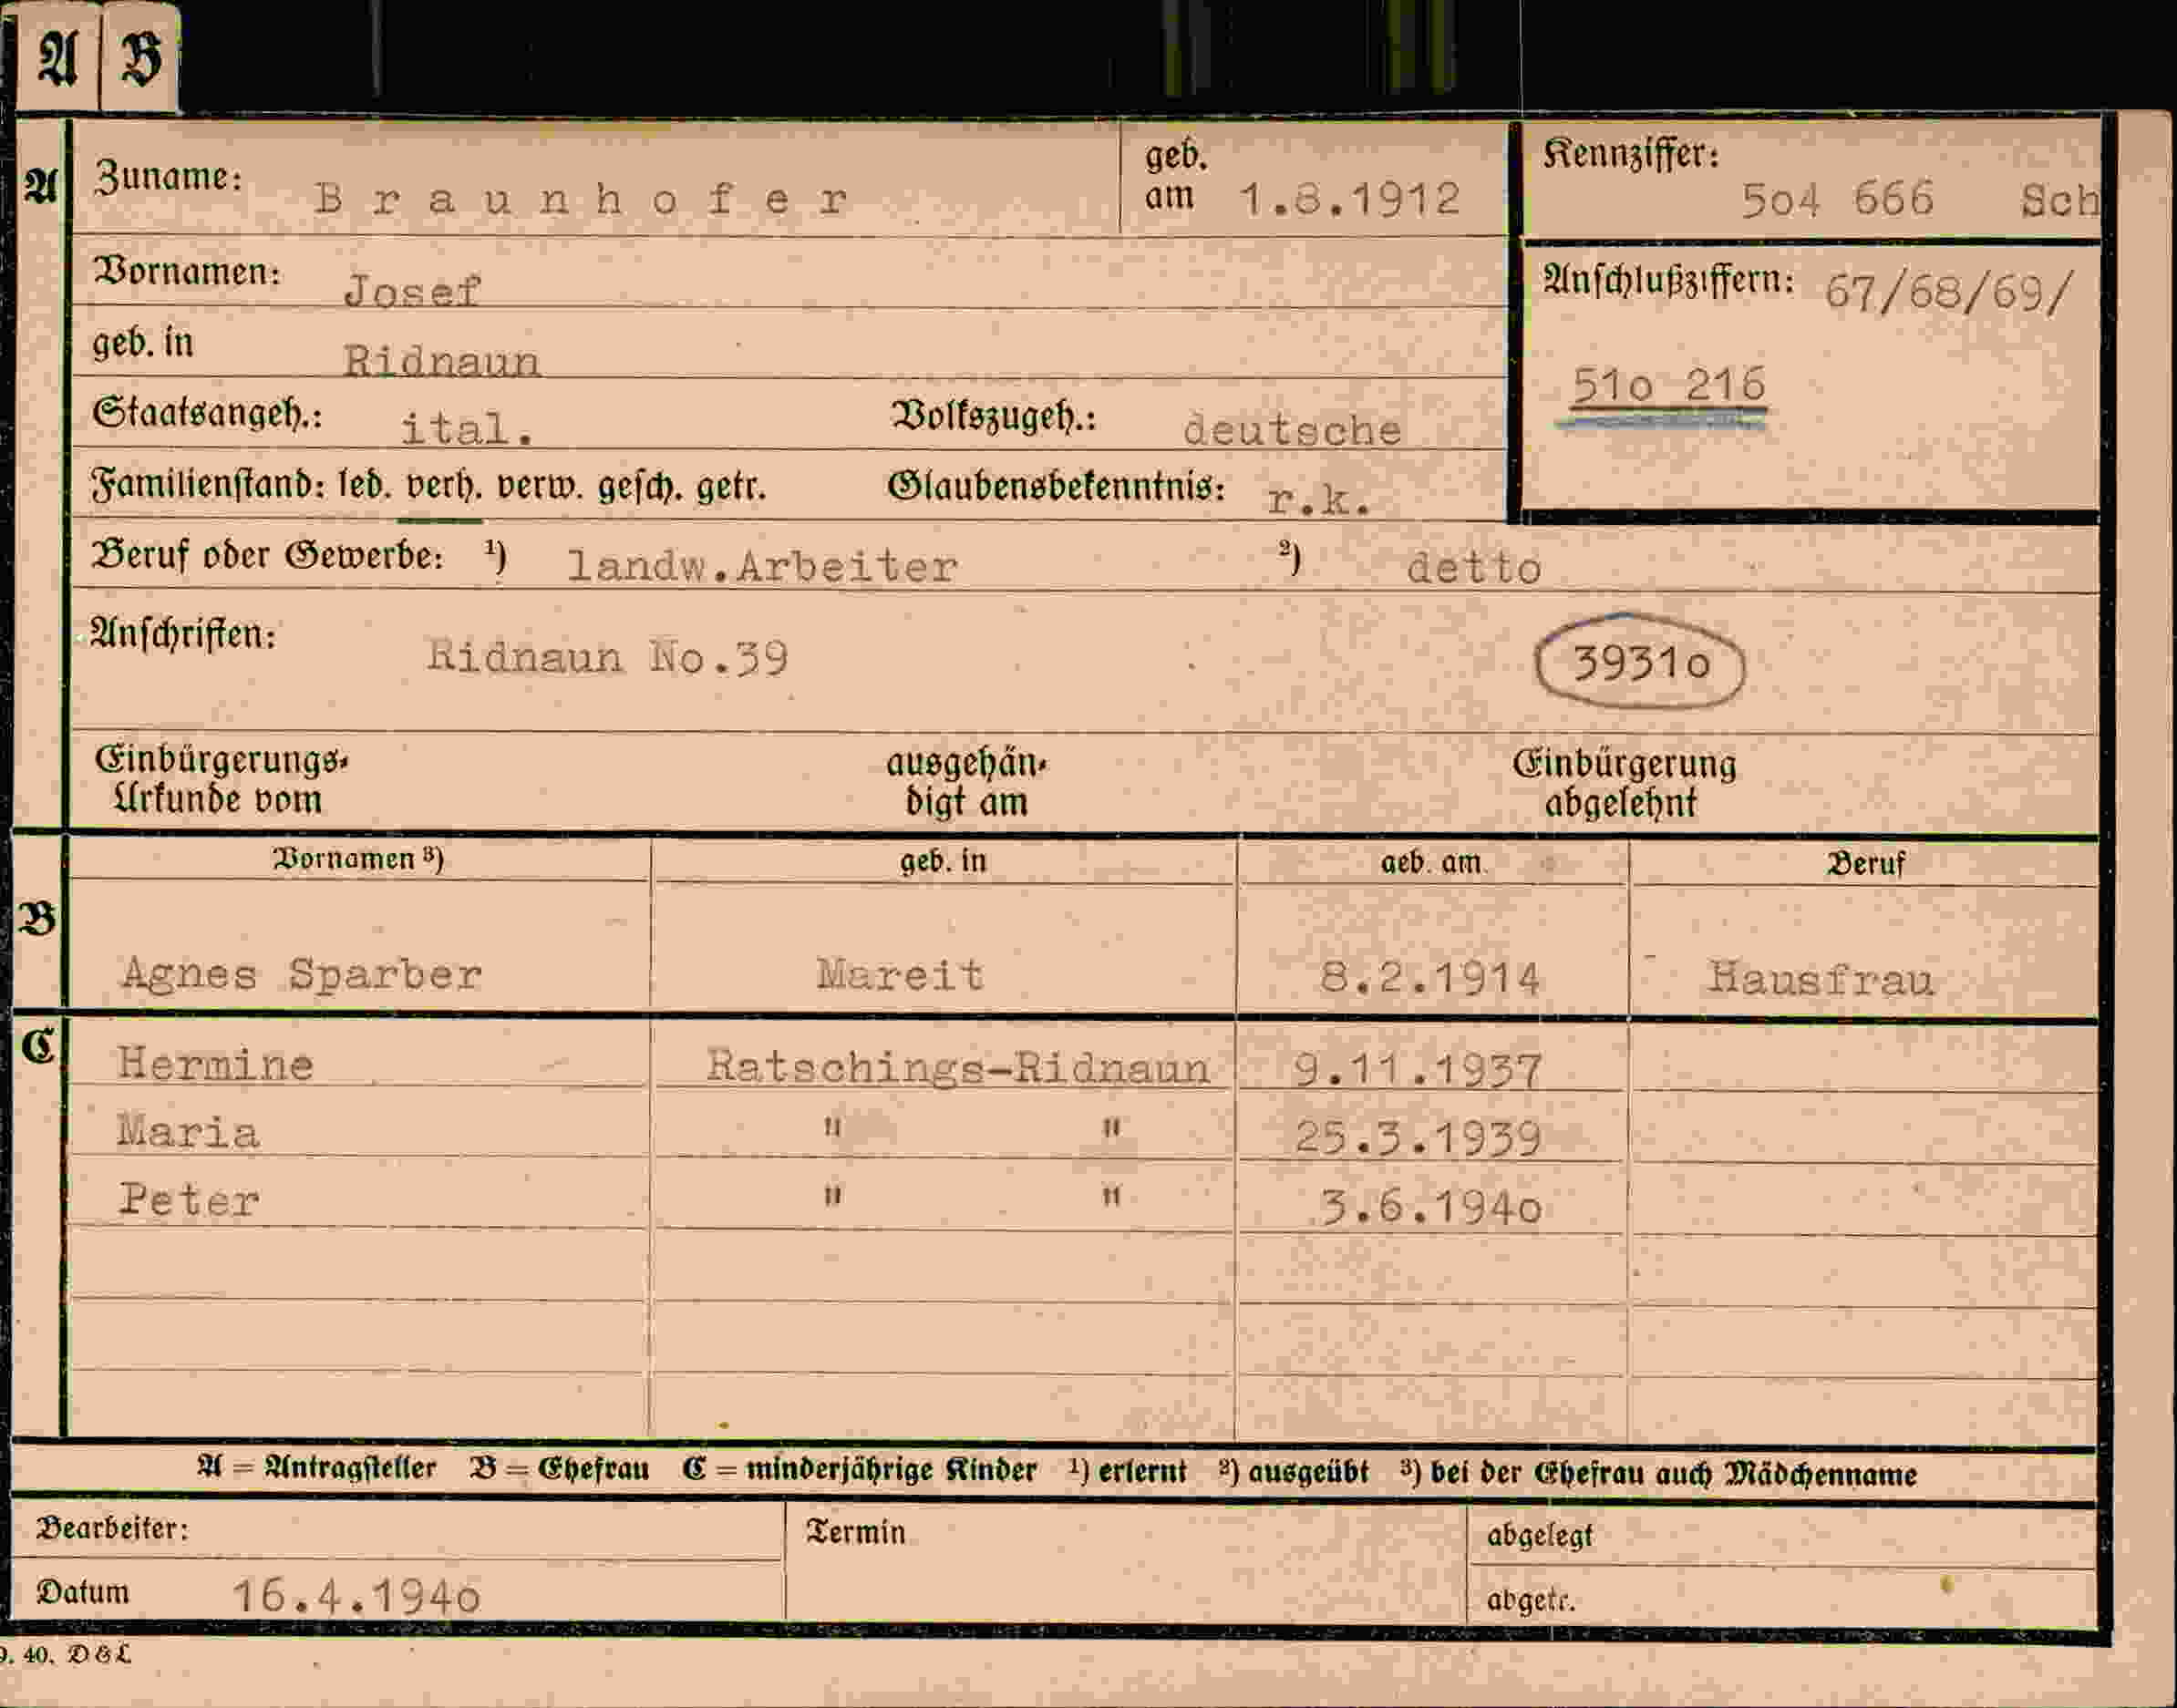 A B
A Zuname: Braunhofer geb. am 1.8.1912 Kennziffer: 5o4 666 Sch
Vornamen: Josef Anschlußziffern: 67/68/69/
geb. in Ridnaun 51o 216
Staatsangeh.: ital. Volkszugeh.: deutsche
Familienstand: led. verh. verw. gesch. getr. Glaubensbekenntnis: r.k.
Beruf oder Gewerbe: ¹) landw.Arbeiter ²) detto
Anschriften: Ridnaun No.39 3931o
Einbürgerungs- ausgehän- Einbürgerung
Urkunde vom digt am abgelehnt
Vornamen ³) geb. in geb. am Beruf
B
Agnes Sparber Mareit 8.2.1914 Hausfrau
C Hermine Ratschings-Ridnaun 9.11.1937
Maria " " 25.3.1939
Peter " " 3.6.194o
A = Antragsteller B = Ehefrau C = minderjährige Kinder ¹) erlernt ²) ausgeübt ³) bei der Ehefrau auch Mädchenname
Bearbeiter: Termin abgelegt
Datum 16.4.194o abgetr.
40. D&L